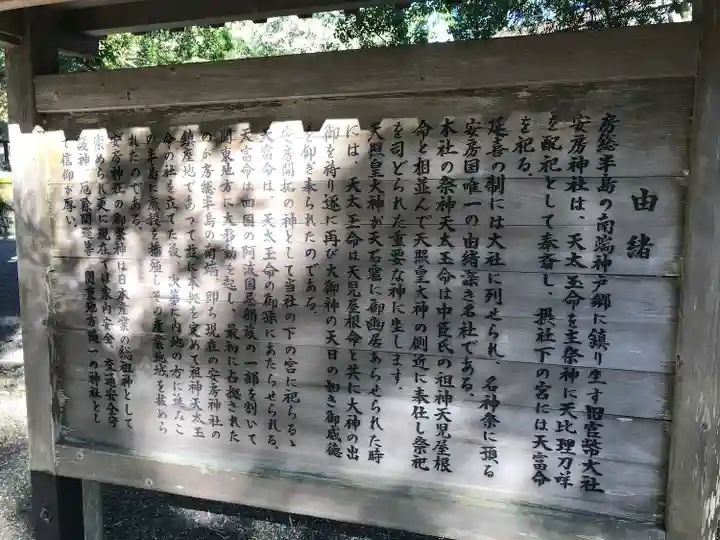 由緒
房総半島の南端神戸郷に鎮り生す旧官幣大社
安房神社は、天太玉命を主祭神に天比理刀咩
を配祀として奉斎し、摂社下の宮には天富命
を祀る。
延喜の制には大社に列せられ、名神祭に預る
安房国唯一の由緒深き名社である。
本社の祭神天太玉命は中臣氏の祖神天児屋根
命と相並んで天照皇大神の側近に奉仕し祭祀
を司どられた重要な神に生します。
天照皇大神が天石窟に御幽居あらせられた時
には、天太玉命は天児屋根命と共に大神の出
御を祷り遂に再び大御神の天日の如き御威徳
を仰ぎ奉られたのである。
安房開拓の神として当社の下の宮に祀らるゝ
天富命は、天太玉命の御孫にあたらせられる。
天富命は四国の阿波国忌部族の一部を割いて
関東地方に大移動を起し、最初に占拠された
のが房総半島の南端、即ち現在の安房神社の
鎮座地であって茲に本拠を定めて祖神天太玉
命の社を立てた後、次第に内地の方に進みこ
の半島に麻穀を播殖しその産業地域を拡めら
れたのである。
安房神社の御祭神は日本産業の総祖神として
崇められ更に現在では家内安全、交通安全守
護神、厄除開運等、関東地方随一の神社とし
て信仰が厚い。